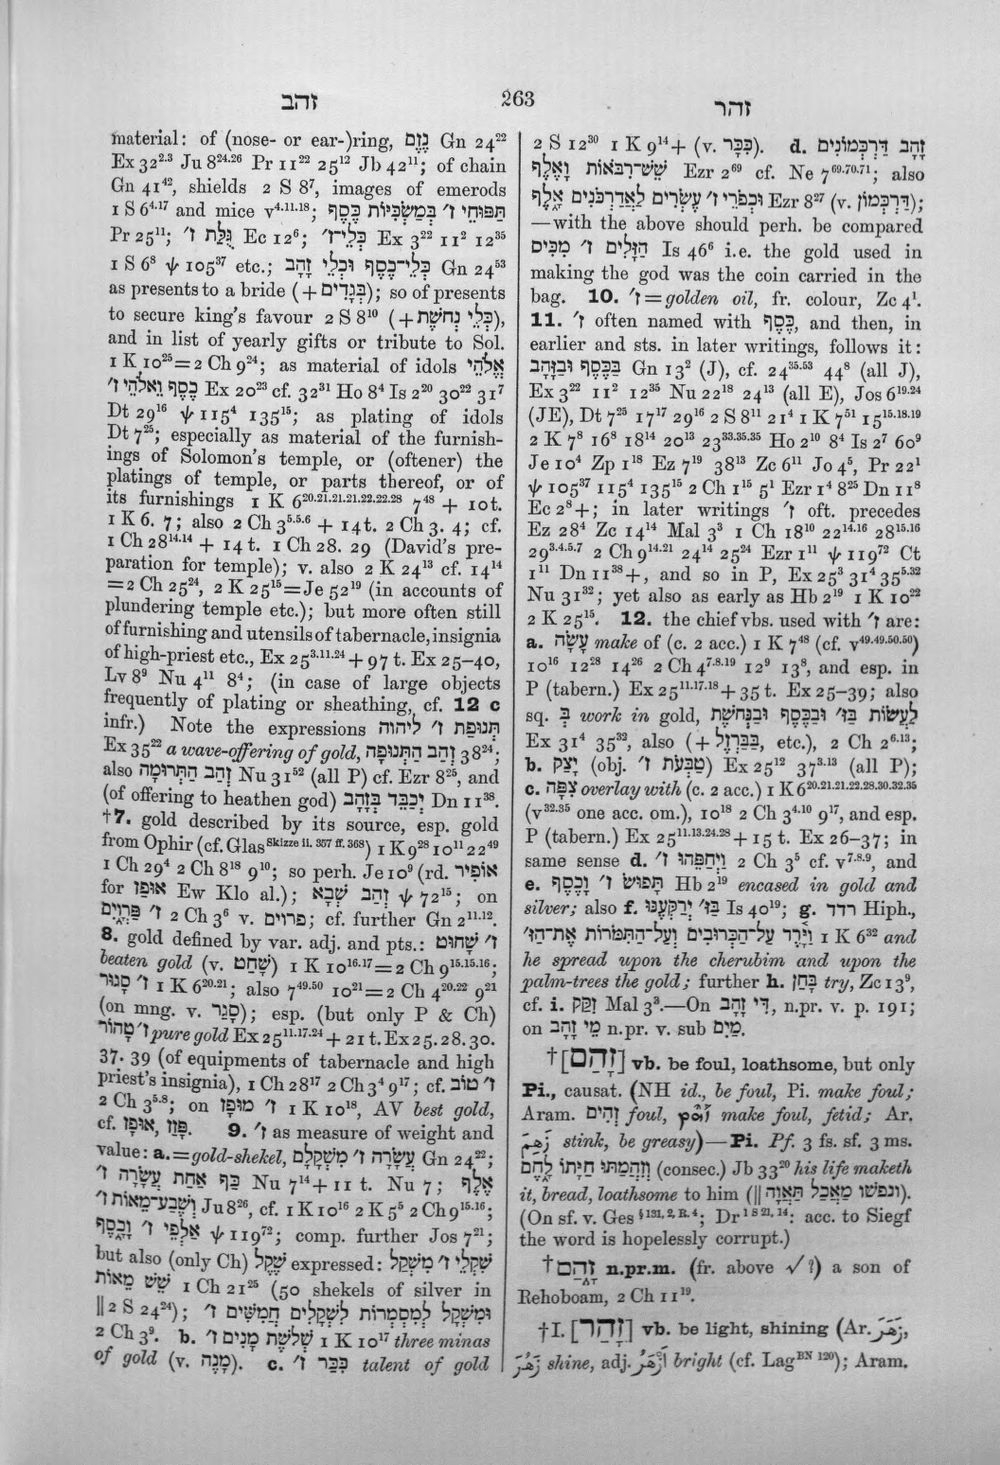 זהב
263
זהר
material: of (nose- or ear-)ring, נֶזֶם Gn 24²²
Ex 32²·³ Ju 8²⁴·²⁶ Pr 11²² 25¹² Jb 42¹¹; of chain
Gn 41⁴², shields 2 S 8⁷, images of emerods
1 S 6⁴·¹⁷ and mice v⁴·¹¹·¹⁸; תַּפּוּחֵי ז׳ בְּמַשְׂכִּיּוֹת כָּסֶף
Pr 25¹¹; גֻּלַּת ז׳ Ec 12⁶; כְּלֵי־ז׳ Ex 3²² 11² 12³⁵
1 S 6⁸ ψ 105³⁷ etc.; כְּלֵי־כֶסֶף וּכְלֵי זָהָב Gn 24⁵³
as presents to a bride (+בְּגָדִים); so of presents
to secure king's favour 2 S 8¹⁰ (+כְּלֵי נְחשֶׁת),
and in list of yearly gifts or tribute to Sol.
1 K 10²⁵=2 Ch 9²⁴; as material of idols אֱלֹהֵי
כֶסֶף וֵאלֹהֵי ז׳ Ex 20²³ cf. 32³¹ Ho 8⁴ Is 2²⁰ 30²² 31⁷
Dt 29¹⁶ ψ 115⁴ 135¹⁵; as plating of idols
Dt 7²⁵; especially as material of the furnish-
ings of Solomon's temple, or (oftener) the
platings of temple, or parts thereof, or of
its furnishings 1 K 6²⁰·²¹·²¹·²¹·²²·²²·²⁸ 7⁴⁸ + 10t.
1 K 6. 7; also 2 Ch 3⁵·⁵·⁶ + 14t. 2 Ch 3. 4; cf.
1 Ch 28¹⁴·¹⁴ + 14 t. 1 Ch 28. 29 (David's pre-
paration for temple); v. also 2 K 24¹³ cf. 14¹⁴
=2 Ch 25²⁴, 2 K 25¹⁵=Je 52¹⁹ (in accounts of
plundering temple etc.); but more often still
of furnishing and utensils of tabernacle, insignia
of high-priest etc., Ex 25³·¹¹·²⁴ + 97 t. Ex 25–40,
Lv 8⁹ Nu 4¹¹ 8⁴; (in case of large objects
frequently of plating or sheathing, cf. 12 c
infr.) Note the expressions תְּנוּפַת ז׳ ליהוה
Ex 35²² a wave-offering of gold, זְהַב הַתְּנוּפָה 38²⁴;
also זְהַב הַתְּרוּמָה Nu 31⁵² (all P) cf. Ezr 8²⁵, and
(of offering to heathen god) יְכַבֵּד בְּזָהָב Dn 11³⁸.
†7. gold described by its source, esp. gold
from Ophir (cf. Glas Skizze ii. 357 ff. 368) 1 K 9²⁸ 10¹¹ 22⁴⁹
1 Ch 29⁴ 2 Ch 8¹⁸ 9¹⁰; so perh. Je 10⁹ (rd. אוֹפִיר
for אוּפָז Ew Klo al.); זְהַב שְׁבָא ψ 72¹⁵; on
ז׳ פַּרְוָיִם 2 Ch 3⁶ v. פרוים; cf. further Gn 2¹¹·¹².
8. gold defined by var. adj. and pts.: ז׳ שָׁחוּט
beaten gold (v. שָׁחַט) 1 K 10¹⁶·¹⁷=2 Ch 9¹⁵·¹⁵·¹⁶;
ז׳ סָגוּר 1 K 6²⁰·²¹; also 7⁴⁹·⁵⁰ 10²¹=2 Ch 4²⁰·²² 9²¹
(on mng. v. סָגַר); esp. (but only P & Ch)
ז׳ טָהוֹר pure gold Ex 25¹¹·¹⁷·²⁴ + 21 t. Ex 25. 28. 30.
37. 39 (of equipments of tabernacle and high
priest's insignia), 1 Ch 28¹⁷ 2 Ch 3⁴ 9¹⁷; cf. ז׳ טוֹב
2 Ch 3⁵·⁸; on ז׳ מוּפָז 1 K 10¹⁸, AV best gold,
cf. פָּזַז, אוּפָז. 9. ז׳ as measure of weight and
value: a.=gold-shekel, עֲשָׂרָה ז׳ מִשְׁקָלָם Gn 24²²;
כַּף אַחַת עֲשָׂרָה ז׳ Nu 7¹⁴+11 t. Nu 7; אֶלֶף
וּשְׁבַע־מֵאוֹת ז׳ Ju 8²⁶, cf. 1 K 10¹⁶ 2 K 5⁵ 2 Ch 9¹⁵·¹⁶;
אַלְפֵי ז׳ וָכָסֶף ψ 119⁷²; comp. further Jos 7²¹;
but also (only Ch) שֶׁקֶל expressed: שִׁקְלֵי ז׳ מִשְׁקָל
שֵׁשׁ מֵאוֹת 1 Ch 21²⁵ (50 shekels of silver in
‖ 2 S 24²⁴); וּמִשְׁקָל לְמִסְמְרוֹת לִשְׁקָלִים חֲמִשִּׁים ז׳
2 Ch 3⁹. b. שְׁלשֶׁת מָנִים ז׳ 1 K 10¹⁷ three minas
of gold (v. מָנֶה). c. כִּכַּר ז׳ talent of gold
2 S 12³⁰ 1 K 9¹⁴+ (v. כִּכָּר). d. זָהָב דַּרְכְּמוֹנִים
שֵׁשׁ־רִבֹּאות וָאֶלֶף Ezr 2⁶⁹ cf. Ne 7⁶⁹·⁷⁰·⁷¹; also
וּכְפֹרֵי ז׳ עֶשְׂרִים לַאֲדַרְכֹּנִים אָלֶף Ezr 8²⁷ (v. דַּרְכְּמוֹן);
—with the above should perh. be compared
הַזָּלִים ז׳ מִכִּיס Is 46⁶ i.e. the gold used in
making the god was the coin carried in the
bag. 10. ז׳=golden oil, fr. colour, Zc 4¹.
11. ז׳ often named with כֶּסֶף, and then, in
earlier and sts. in later writings, follows it:
בַּכֶּסֶף וּבַזָּהָב Gn 13² (J), cf. 24³⁵·⁵³ 44⁸ (all J),
Ex 3²² 11² 12³⁵ Nu 22¹⁸ 24¹³ (all E), Jos 6¹⁹·²⁴
(JE), Dt 7²⁵ 17¹⁷ 29¹⁶ 2 S 8¹¹ 21⁴ 1 K 7⁵¹ 15¹⁵·¹⁸·¹⁹
2 K 7⁸ 16⁸ 18¹⁴ 20¹³ 23³³·³⁵·³⁵ Ho 2¹⁰ 8⁴ Is 2⁷ 60⁹
Je 10⁴ Zp 1¹⁸ Ez 7¹⁹ 38¹³ Zc 6¹¹ Jo 4⁵, Pr 22¹
ψ 105³⁷ 115⁴ 135¹⁵ 2 Ch 1¹⁵ 5¹ Ezr 1⁴ 8²⁵ Dn 11⁸
Ec 2⁸+; in later writings ז׳ oft. precedes
Ez 28⁴ Zc 14¹⁴ Mal 3³ 1 Ch 18¹⁰ 22¹⁴·¹⁶ 28¹⁵·¹⁶
29³·⁴·⁵·⁷ 2 Ch 9¹⁴·²¹ 24¹⁴ 25²⁴ Ezr 1¹¹ ψ 119⁷² Ct
1¹¹ Dn 11³⁸+, and so in P, Ex 25³ 31⁴ 35⁵·³²
Nu 31³²; yet also as early as Hb 2¹⁹ 1 K 10²²
2 K 25¹⁵. 12. the chief vbs. used with ז׳ are:
a. עָשָׂה make of (c. 2 acc.) 1 K 7⁴⁸ (cf. v⁴⁹·⁴⁹·⁵⁰·⁵⁰)
10¹⁶ 12²⁸ 14²⁶ 2 Ch 4⁷·⁸·¹⁹ 12⁹ 13⁸, and esp. in
P (tabern.) Ex 25¹¹·¹⁷·¹⁸+35 t. Ex 25–39; also
sq. בְּ work in gold, לַעֲשׂוֹת בַּז׳ וּבַכֶּסֶף וּבַנְּחשֶׁת
Ex 31⁴ 35³², also (+בַּבַּרְזֶל, etc.), 2 Ch 2⁶·¹³;
b. יָצַק (obj. טַבְּעֹת ז׳) Ex 25¹² 37³·¹³ (all P);
c. צִפָּה overlay with (c. 2 acc.) 1 K 6²⁰·²¹·²¹·²²·²⁸·³⁰·³²·³⁵
(v³²·³⁵ one acc. om.), 10¹⁸ 2 Ch 3⁴·¹⁰ 9¹⁷, and esp.
P (tabern.) Ex 25¹¹·¹³·²⁴·²⁸+15 t. Ex 26–37; in
same sense d. וַיְחַפֵּהוּ ז׳ 2 Ch 3⁵ cf. v⁷·⁸·⁹, and
e. תָּפוּשׂ ז׳ וָכֶסֶף Hb 2¹⁹ encased in gold and
silver; also f. בַּז׳ יְרַקְּעֶנּוּ Is 40¹⁹; g. רדד Hiph.,
וַיָּרֶד עַל־הַכְּרוּבִים וְעַל־הַתִּמֹרוֹת אֶת־הַזּ׳ 1 K 6³² and
he spread upon the cherubim and upon the
palm-trees the gold; further h. בָּחַן try, Zc 13⁹,
cf. i. זִקַּק Mal 3³.—On דִּי זָהָב, n.pr. v. p. 191;
on מֵי זָהָב n.pr. v. sub מַיִם.
†[זָהַם] vb. be foul, loathsome, but only
Pi., causat. (NH id., be foul, Pi. make foul;
Aram. זְהִים foul, make foul, fetid; Ar.
زَهِمَ stink, be greasy)—Pi. Pf. 3 fs. sf. 3 ms.
וְזִהֲמַתּוּ חַיָּתוֹ לָחֶם (consec.) Jb 33²⁰ his life maketh
it, bread, loathsome to him (‖ ונפשׁו מַאֲכַל תַּאֲוָה).
(On sf. v. Ges § 131, 2, R. 4; Dr 1 S 21, 14: acc. to Siegf
the word is hopelessly corrupt.)
†זַהַם n.pr.m. (fr. above √?) a son of
Rehoboam, 2 Ch 11¹⁹.
†I. [זָהַר] vb. be light, shining (Ar. زَهَرَ,
زَهُرَ shine, adj. أَزْهَرُ bright (cf. Lag BN 120); Aram.